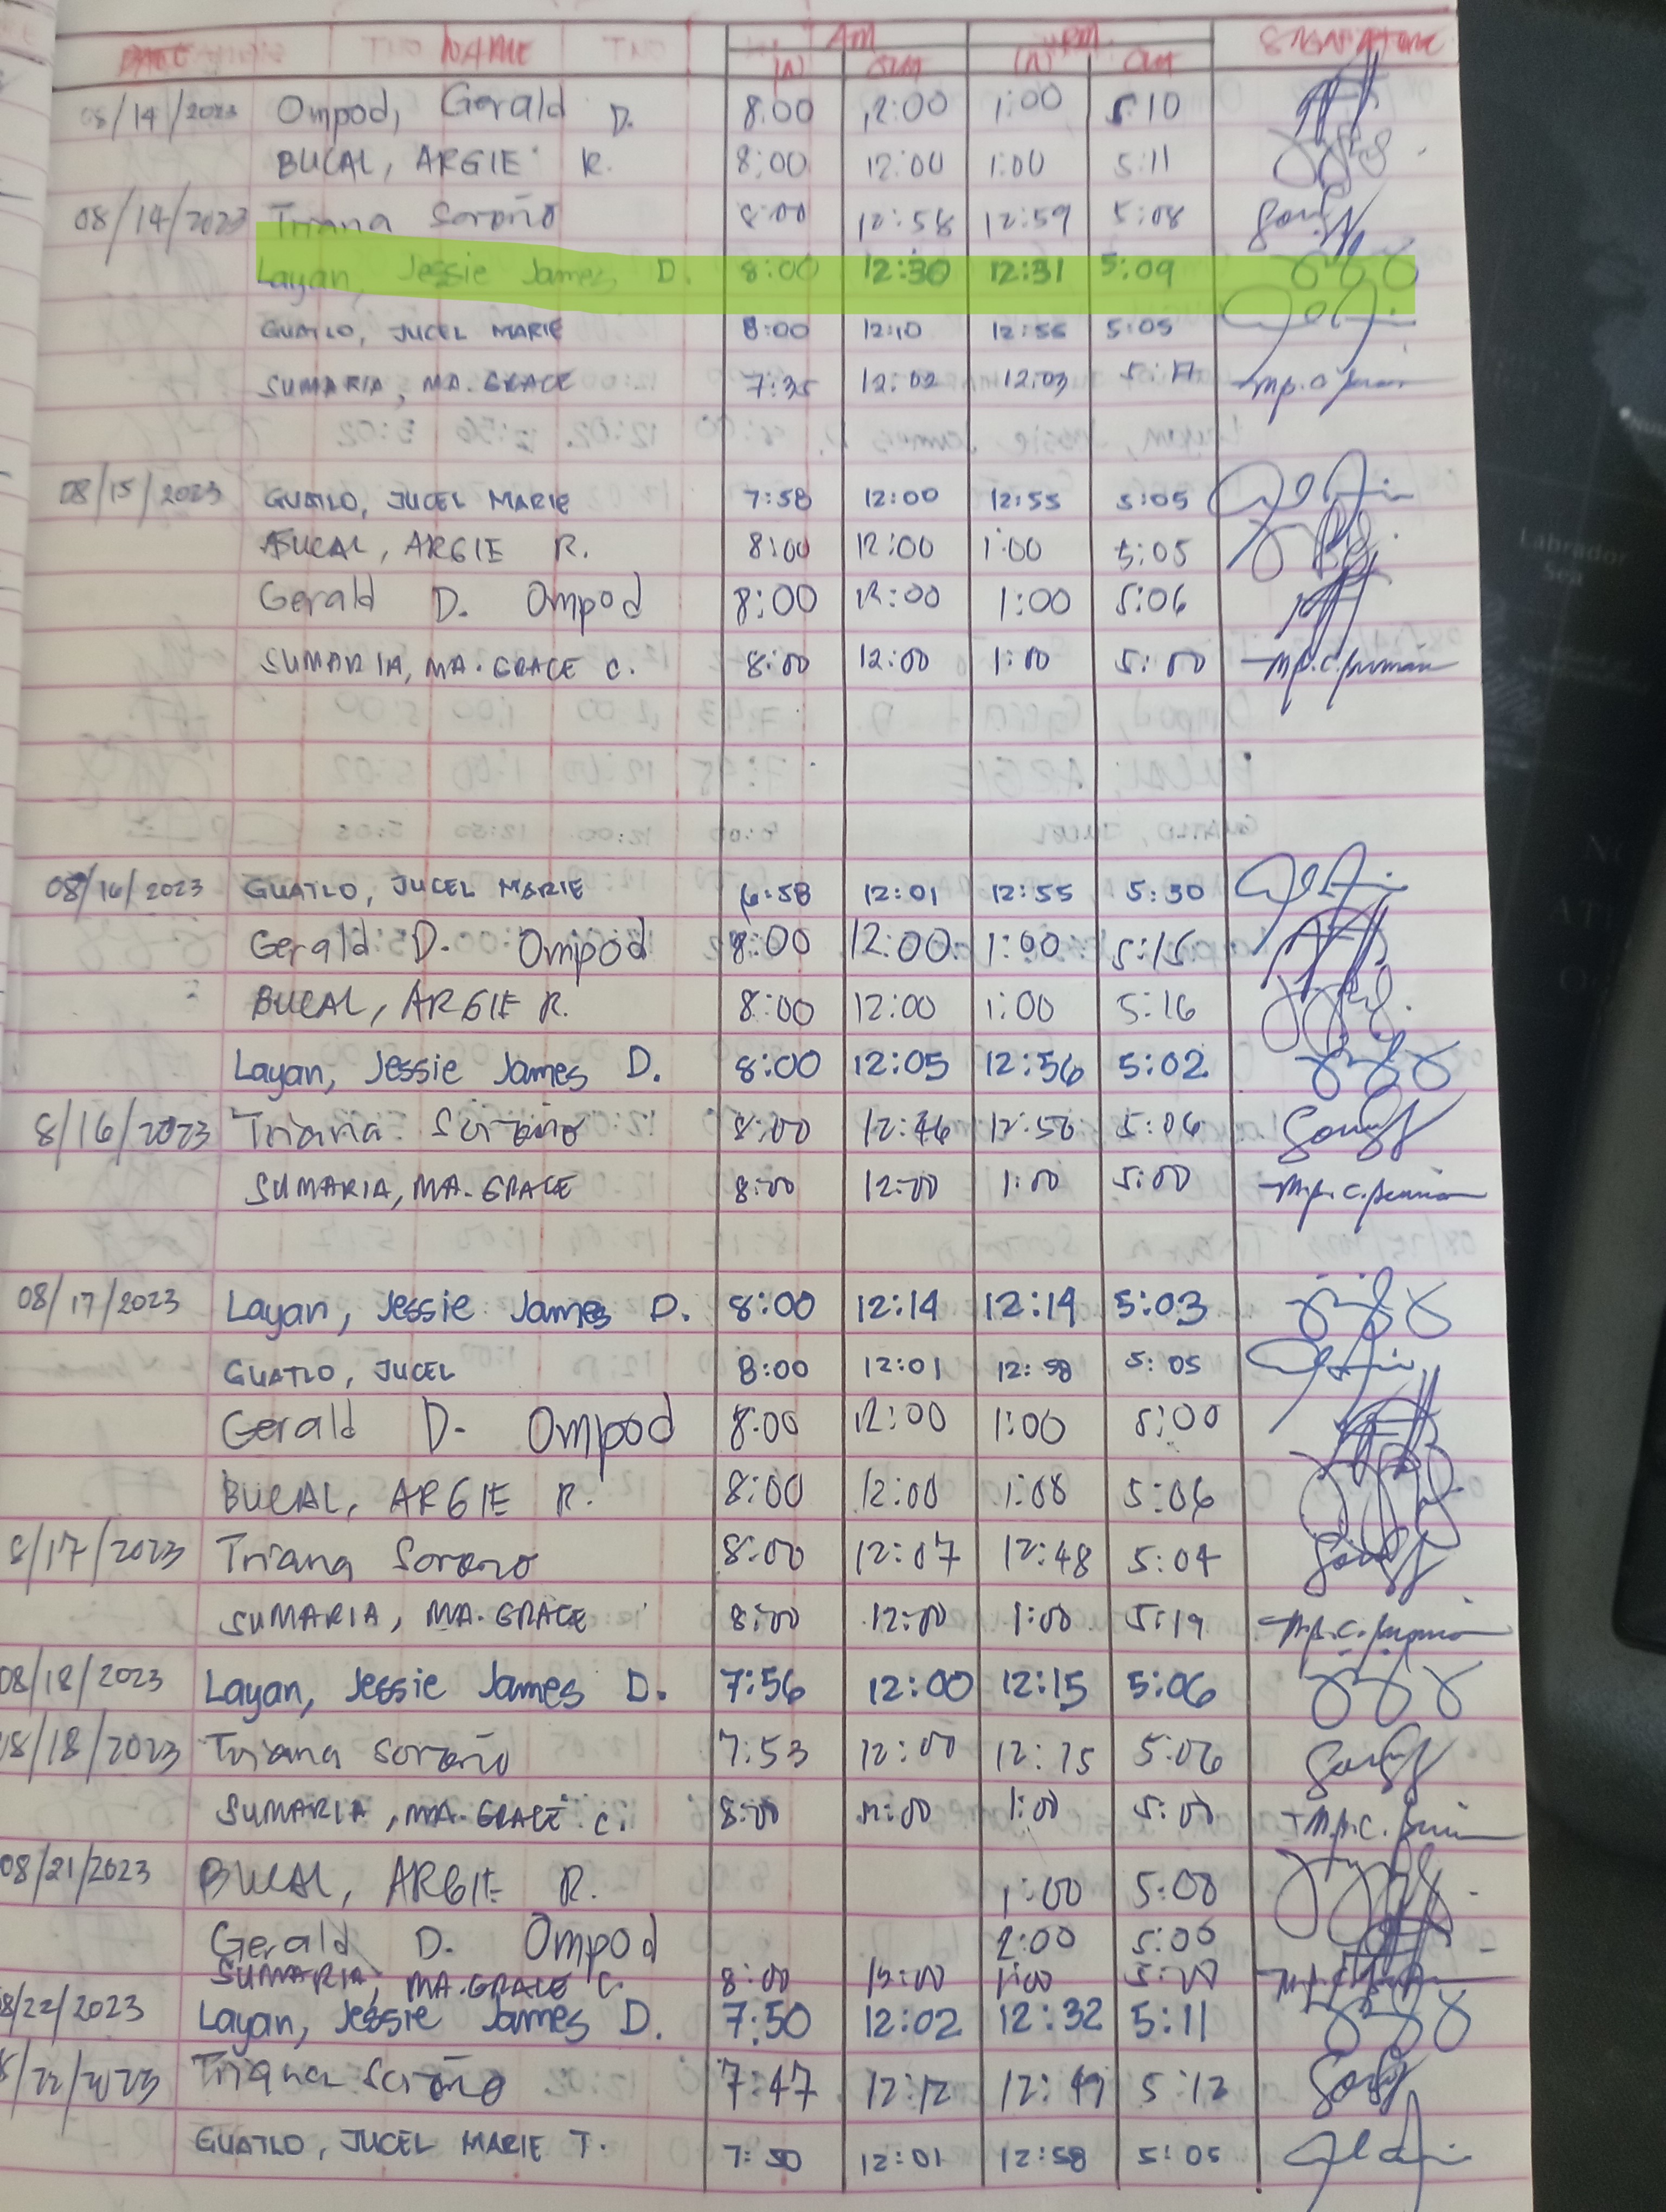 DATE NAME AM PM SIGNATURE
IN OUT IN OUT
08/14/2023 Ompod, Gerald D. 8:00 12:00 1:00 5:10
BUCAL, ARGIE R. 8:00 12:00 1:00 5:11
08/14/2023 Triana Soroño 8:00 12:58 12:59 5:08
Layan, Jessie James D. 8:00 12:30 12:31 5:09
GUATLO, JUCEL MARIE 8:00 12:10 12:55 5:05
SUMARIA, MA. GRACE 7:35 12:02 12:03
08/15/2023 GUATLO, JUCEL MARIE 7:58 12:00 12:55 5:05
BUCAL, ARGIE R. 8:00 12:00 1:00 5:05
Gerald D. Ompod 8:00 12:00 1:00 5:06
SUMARIA, MA. GRACE C. 8:00 12:00 1:00 5:00
08/16/2023 GUATLO, JUCEL MARIE 6:58 12:01 12:55 5:30
Gerald D. Ompod 8:00 12:00 1:00 5:15
BUCAL, ARGIE R. 8:00 12:00 1:00 5:16
Layan, Jessie James D. 8:00 12:05 12:56 5:02
8/16/2023 Triana Soroño 8:00 12:46 12:56 5:06
SUMARIA, MA. GRACE 8:00 12:00 1:00 5:00
08/17/2023 Layan, Jessie James D. 8:00 12:14 12:14 5:03
GUATLO, JUCEL 8:00 12:01 12:58 5:05
Gerald D. Ompod 8:00 12:00 1:00 5:00
BUCAL, ARGIE R. 8:00 12:00 1:08 5:06
8/17/2023 Triana Soroño 8:00 12:07 12:48 5:04
SUMARIA, MA. GRACE 8:00 12:00 1:00 5:19
08/18/2023 Layan, Jessie James D. 7:56 12:00 12:15 5:06
8/18/2023 Triana Soroño 7:53 12:00 12:15 5:06
SUMARIA, MA. GRACE C. 8:00 12:00 1:00 5:00
08/21/2023 BUCAL, ARGIE R. 1:00 5:00
Gerald D. Ompod 2:00 5:00
SUMARIA, MA. GRACE C. 8:00 12:00 1:00 5:00
8/22/2023 Layan, Jessie James D. 7:50 12:02 12:32 5:11
8/22/2023 Triana Soroño 7:47 12:12 12:49 5:12
GUATLO, JUCEL MARIE T. 7:50 12:01 12:58 5:05
Labrador
Sea